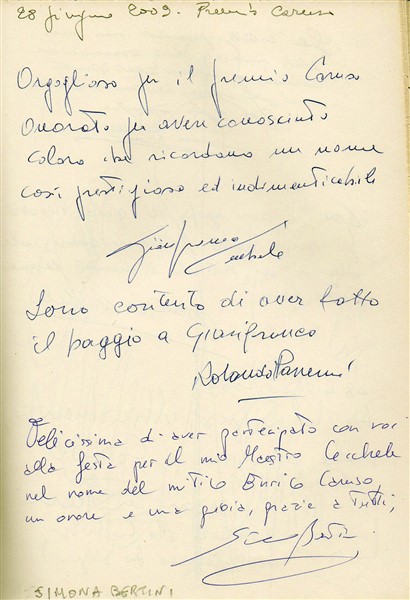 28 giugno 2009. Premio Caruso
Orgoglioso per il premio Caruso
Onorato per avere conosciuto
coloro che ricordano un nome
così prestigioso ed indimenticabile
Gianfranco Cecchele
Sono contento di aver fatto
il paggio a Gianfranco
Rolando Panerai
Felicissima di aver partecipato con voi
alla festa per il mio Maestro Cecchele
nel nome del mitico Enrico Caruso,
un onore e una gioia, grazie a tutti,
SIMONA BERTINI